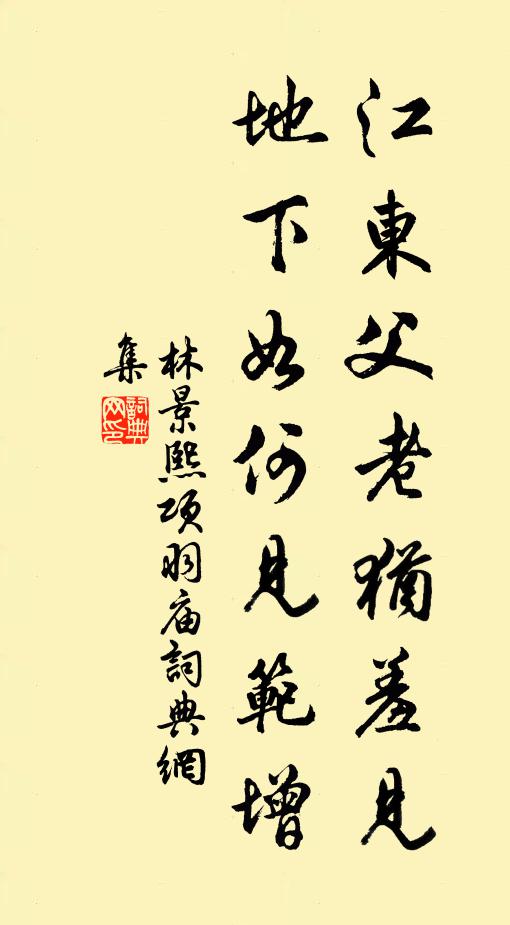 江東父老猶羞見
地下如何見範增
林景熙項羽廟詞典網
集
詞典
网印